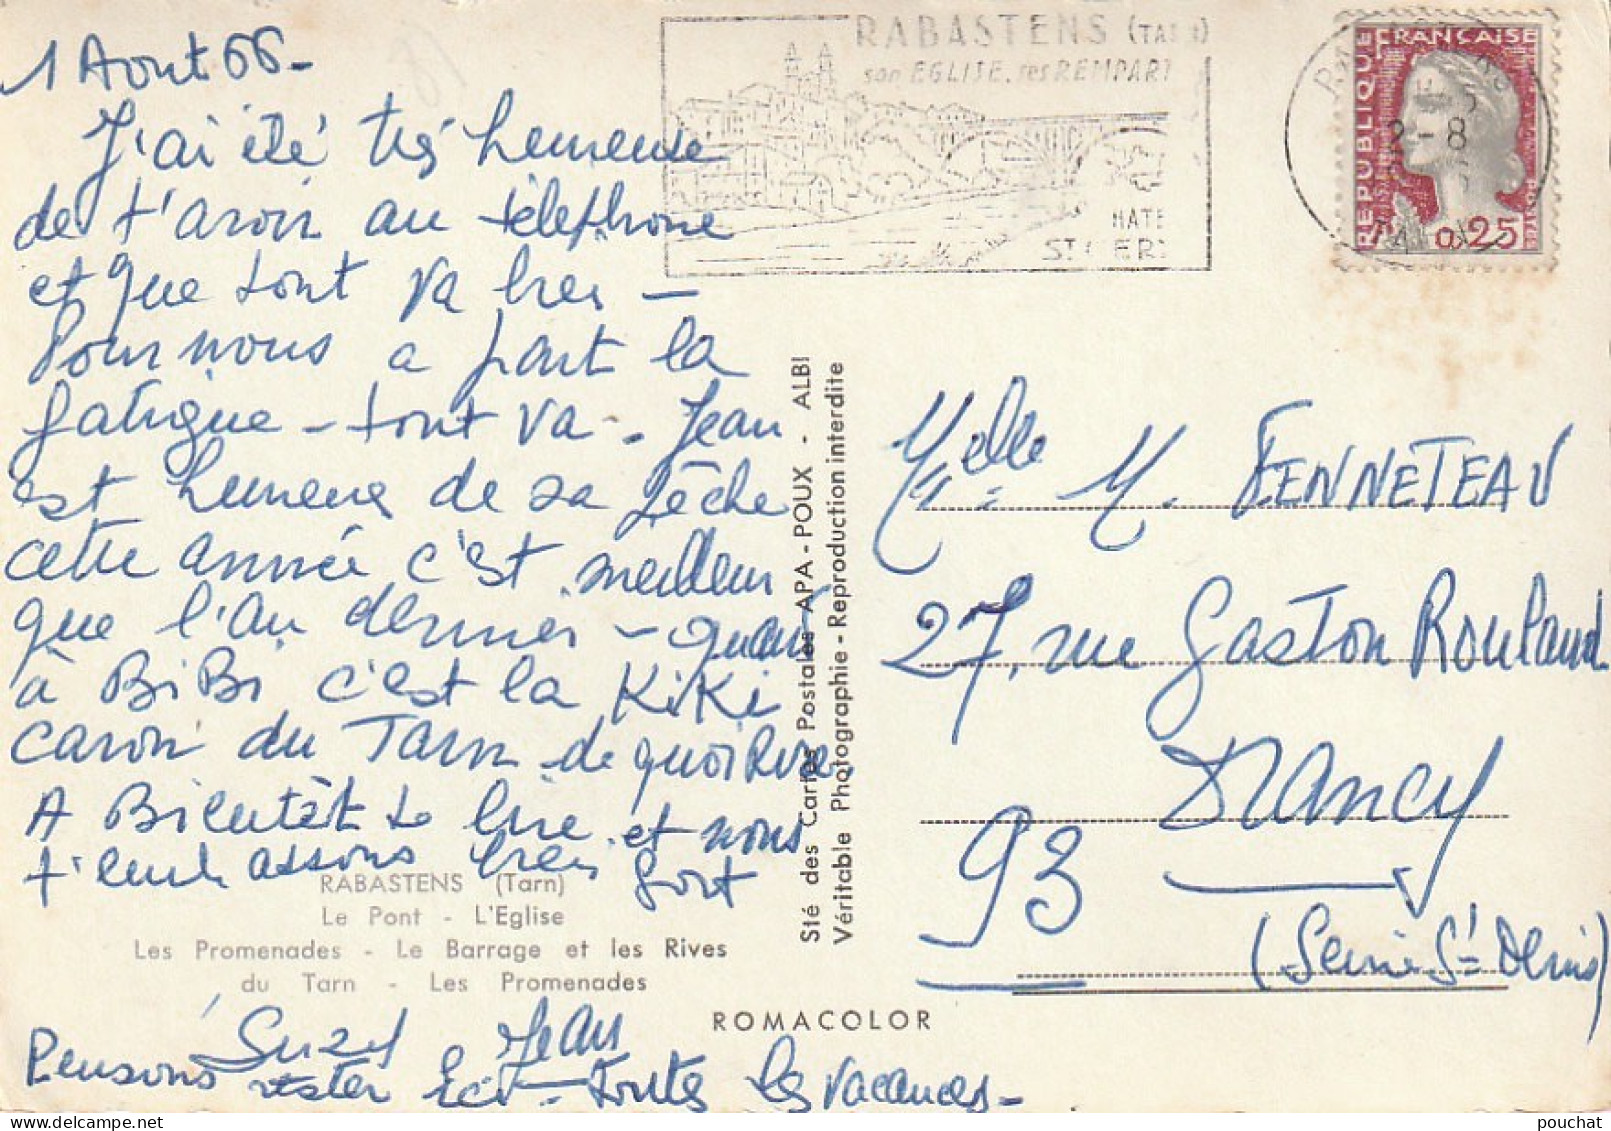 1 Aout 66 -
J'ai été très heureuse
de t'avoir au téléphone
et que tout va bien -
Pour nous a part la
fatigue - tout va - Jean
est heureux de sa pêche
cette année c'est meilleur
que l'an dernier - quant
à BiBi c'est la KiKi
du Tarn de quoi Rire
A Bientôt te lire et nous
t'embrassons bien fort
RABASTENS (Tarn)
Le Pont - L'Eglise
Les Promenades - Le Barrage et les Rives
du Tarn - Les Promenades
Suzy Jean
Pensons rester ici toutes les vacances -
Sté des Cartes Postales APA - POUX - ALBI
Véritable Photographie - Reproduction interdite
ROMACOLOR
RABASTENS (TARN)
son EGLISE, ses REMPART
HATE
2 - 8
REPUBLIQUE FRANÇAISE
0,25
Melle M. FENNETEAU
27, rue Gaston Roulaud
Drancy
93
(Seine St Denis)
pouchat